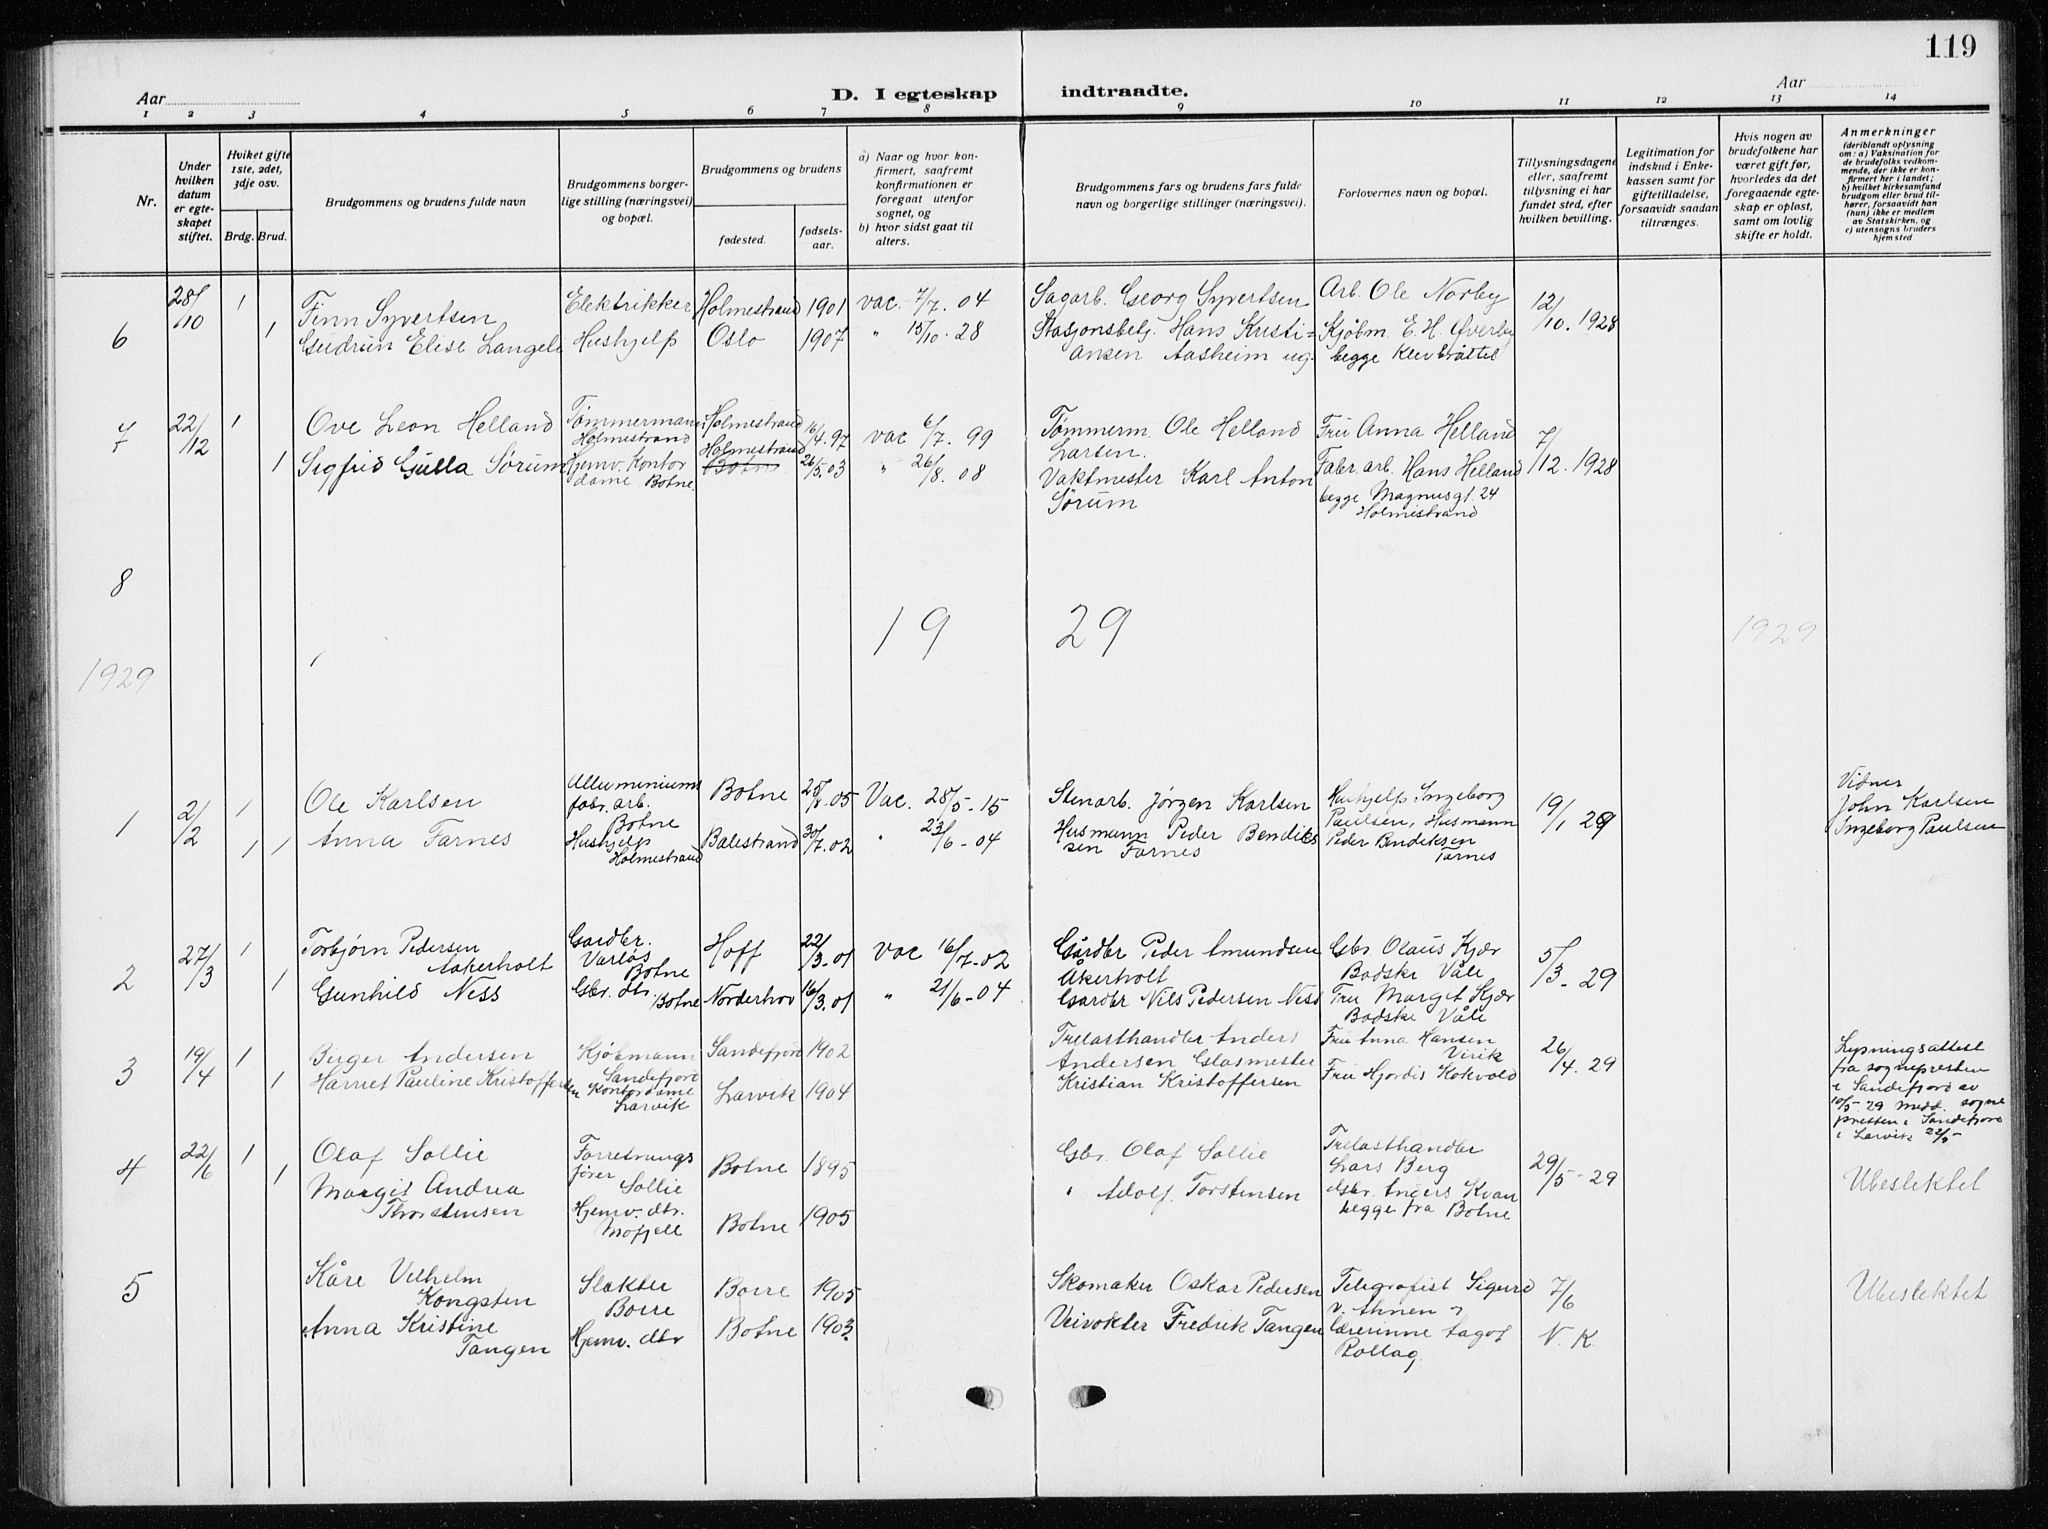 119
Aar
D. I egteskap indtraadte.
Aar
1 2 3 4 5 6 7 8 9 10 11 12 13 14
Nr.
Under
hvilken
datum
er egte-
skapet
stiftet.
Hviket gifte
1ste, 2det,
3dje osv.
Brdg. Brud.
Brudgommens og brudens fulde navn
Brudgommens borger-
lige stilling (næringsvei)
og bopæl.
Brudgommens og brudens
fødested.
fødsels-
aar.
a) Naar og hvor kon-
firmert, saafremt
konfirmationen er
foregaat utenfor
sognet, og
b) hvor sidst gaat til
alters.
Brudgommens fars og brudens fars fulde
navn og borgerlige stillinger (næringsvei).
Forlovernes navn og bopæl.
Tillysningsdagene
eller, saafremt
tillysning ei har
fundet sted, efter
hvilken bevilling.
Legitimation for
indskud i Enke-
kassen samt for
giftetilladelse,
forsaavidt saadan
tiltrænges.
Hvis nogen av
brudefolkene har
været gift før,
hvorledes da det
foregaaende egte-
skap er opløst,
samt om lovlig
skifte er holdt.
Anmerkninger
(deriblandt oplysning
om: a) Vaksination for
de brudefolks vedkom-
mende, der ikke er kon-
firmert her i landet;
b) hvilket kirkesamfund
brudgom eller brud til-
hører, forsaavidt han
(hun) ikke er medlem
av Statskirken, og
c) utensogns bruders
hjemsted
6
28/10
1
1
Finn Syvertsen
Gudrun Elise Langele
Elektrikker
Hushjelp
Holmestrand
Oslo
1901
1907
vac. 7/7. 04
" 15/10. 28
Sagarb. Georg Syvertsen
Stasjonsbetj. Hans Kristi=
ansen Aasheim ug.
Arb. Ole Norby
Kjøbm. E. H. Øverby
begge Klevbråttel
12/10. 1928
7
22/12
1
1
Ove Leon Helland
Sigfrid Gulla Sørum
Tømmermann
Holmestrand
Hjemv. Kontor
dame Botne.
Holmestrand
Holmestrand
Botne
16/4. 97
26/5. 03
vac 6/7. 99
" 26/8. 08
Tømmerm. Ole Helland
Larsen.
Vaktmester Karl Anton
Sørum
Fru Anna Helland
Fabr. arb. Hans Helland
begge Magnusgt. 24
Holmestrand
7/12. 1928
8
19 29
1929
1929
1
2/2
1 1
Ole Karlsen
Anna Farnes
Alluminiums
fabr. arb.
Botne
Hushjelp
Holmestrand
Botne
Balestrand
25/8. 05
30/7. 02
Vac. 28/5. 15
" 23/6 - 04
Stenarb. Jørgen Karlsen
Husmann Peder Bendiks
sen Farnes
Hushjelp Ingeborg
Paulsen, Husmann
Peder Bendiksen
Farnes
19/1 29
Vidner
John Karlsen
Ingeborg Paulsen
2
27/3
1
1
Torbjørn Pedersen
Aakerholt
Gunhild Ness
Gardbr.
Varløs
Botne
Gbr. dtr.
Botne
Hoff
Norderhov
22/3. 01
16/3. 01
vac 16/7. 02
" 21/6 - 04
Gårdbr Peder Amundsen
Åkerholt
Gardbr Nils Pedersen Ness
Gbr. Olaus Kjær
Badske Våle
Fru Marget Kjær
Badske Våle
5/3. 29
3
19/4
1
1
Birger Andersen
Harriet Pauline Kristoffersen
Kjøbmann
Sandefjord
Kontordame
Larvik
Sandefjord
Larvik
1902
1904
Trelasthandler Anders
Andersen Glasmester
Kristian Kristoffersen
Fru Anna Hansen
Virik
Fru Hjordis Kokvold
26/4. 29
Lysningsattest
fra sognepresten
i Sandefjord av
10/5 29 Medd. sogne
presten i Sandefjord
i Larvik 22/5
4
22/6
1
1
Olaf Sollie
Margit Andrea
Thorstensen
Forretnings
fører
Sollie
Hjemv. dtr.
Mofjell
Botne
Botne
1895
1905
Gbr. Olaf Sollie
" Adolf Torstensen
Trelasthandler
Lars Berg
Gbr. Anders Kvan
begge fra Botne
29/5 - 29
Ubeslektet
5
Kåre Vilhelm
Kongsten
Anna Kristine
Tangen
Slakter
Borre
Hjemv. dtr
Borre
Botne
1905
1903
Skomaker Oskar Pedersen
Veivokter Fredrik Tangen
Telegrafist Sigurd
v. Ahnen
Lærerinne Aagot
Rollag.
7/6
N. K.
Ubeslektet